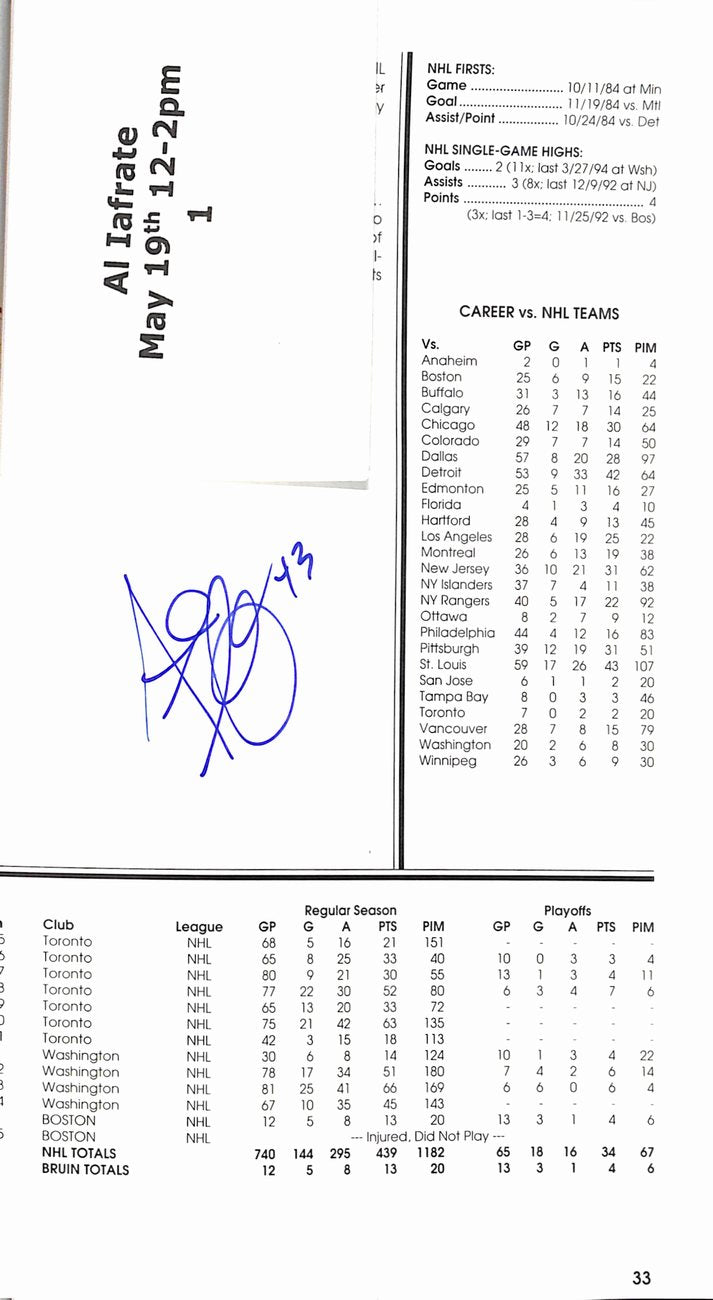 Al Iafrate
May 19th 12-2pm
1
NHL FIRSTS:
Game .......................... 10/11/84 at Min
Goal ............................. 11/19/84 vs. Mtl
Assist/Point ................. 10/24/84 vs. Det
NHL SINGLE-GAME HIGHS:
Goals ........ 2 (11x; last 3/27/94 at Wsh)
Assists ........... 3 (8x; last 12/9/92 at NJ)
Points .................................................. 4
(3x; last 1-3=4; 11/25/92 vs. Bos)
CAREER vs. NHL TEAMS
Vs. GP G A PTS PIM
Anaheim 2 0 1 1 4
Boston 25 6 9 15 22
Buffalo 31 3 13 16 44
Calgary 26 7 7 14 25
Chicago 48 12 18 30 64
Colorado 29 7 7 14 50
Dallas 57 8 20 28 97
Detroit 53 9 33 42 64
Edmonton 25 5 11 16 27
Florida 4 1 3 4 10
Hartford 28 4 9 13 45
Los Angeles 28 6 19 25 22
Montreal 26 6 13 19 38
New Jersey 36 10 21 31 62
NY Islanders 37 7 4 11 38
NY Rangers 40 5 17 22 92
Ottawa 8 2 7 9 12
Philadelphia 44 4 12 16 83
Pittsburgh 39 12 19 31 51
St. Louis 59 17 26 43 107
San Jose 6 1 1 2 20
Tampa Bay 8 0 3 3 46
Toronto 7 0 2 2 20
Vancouver 28 7 8 15 79
Washington 20 2 6 8 30
Winnipeg 26 3 6 9 30
43
Regular Season Playoffs
Club League GP G A PTS PIM GP G A PTS PIM
5 Toronto NHL 68 5 16 21 151 - - - - -
6 Toronto NHL 65 8 25 33 40 10 0 3 3 4
7 Toronto NHL 80 9 21 30 55 13 1 3 4 11
8 Toronto NHL 77 22 30 52 80 6 3 4 7 6
9 Toronto NHL 65 13 20 33 72 - - - - -
0 Toronto NHL 75 21 42 63 135 - - - - -
1 Toronto NHL 42 3 15 18 113 - - - - -
Washington NHL 30 6 8 14 124 10 1 3 4 22
2 Washington NHL 78 17 34 51 180 7 4 2 6 14
3 Washington NHL 81 25 41 66 169 6 6 0 6 4
4 Washington NHL 67 10 35 45 143 - - - - -
BOSTON NHL 12 5 8 13 20 13 3 1 4 6
5 BOSTON NHL --- Injured, Did Not Play ---
NHL TOTALS 740 144 295 439 1182 65 18 16 34 67
BRUIN TOTALS 12 5 8 13 20 13 3 1 4 6
33